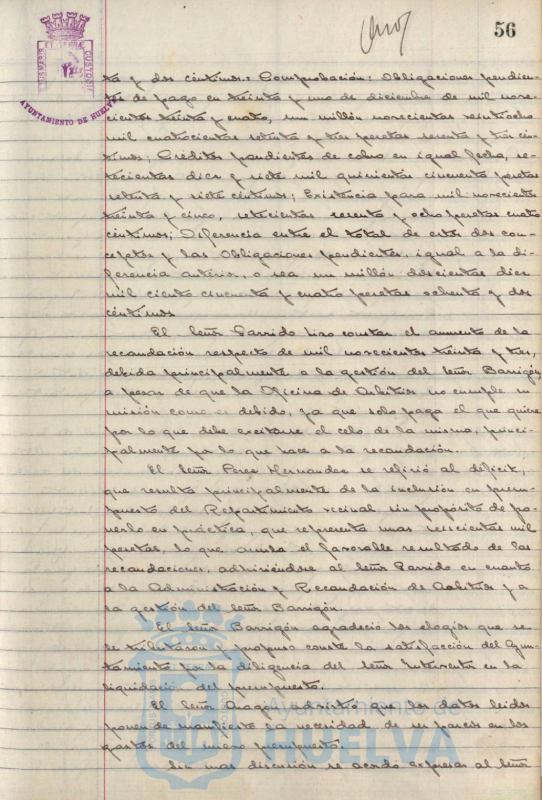 56
AYUNTAMIENTO DE HUELVA
ta y dos céntimos. Comprobación: Obligaciones pendien-
tes de pago en treinta y uno de diciembre de mil nove-
cientos treinta y cuatro, un millón novecientos veintiocho
mil cuatrocientas setenta y tres pesetas sesenta y tres cén-
timos; Créditos pendientes de cobro en igual fecha, se-
tecientas diez y siete mil quinientas cincuenta pesetas
setenta y siete céntimos; Existencia para mil novecientos
treinta y cinco, setecientas sesenta y ocho pesetas cuatro
céntimos; Diferencia entre el total de estos dos con-
ceptos y las Obligaciones pendientes, igual a la di-
ferencia anterior, o sea un millón doscientas diez
mil ciento cincuenta y cuatro pesetas ochenta y dos
céntimos
El Señor Garrido hizo constar el aumento de la
recaudación respecto de mil novecientos treinta y tres,
debida principalmente a la gestión del Señor Barrigón,
a pesar de que la Oficina de Arbitrios no cumple su
misión como es debido, ya que solo paga el que quiere
por lo que debe excitarse el celo de la misma, princi-
palmente por lo que hace a la recaudación.
El Señor Perez Hernandez se refirió al deficit,
que resulta principalmente de la inclusión en presu-
puesto del Repartimiento vecinal sin propósito de po-
nerlo en práctica, que representa unas seiscientas mil
pesetas, lo que anula el favorable resultado de las
recaudaciones, adhiriéndose al Señor Garrido en cuanto
a la Administración y Recaudación de Arbitrios y a
la gestión del Señor Barrigón.
El Señor Barrigón agradeció los elogios que se
le tributaron y propuso conste la satisfacción del Ayun-
tamiento por la diligencia del Señor Interventor en la
liquidación del presupuesto.
El Señor advirtió que los datos leidos
ponen de manifiesto la necesidad de ser parcos en los
gastos del nuevo presupuesto.
Sin mas discusión se acordó expresar al Señor
Ayuntamiento de
HUELVA